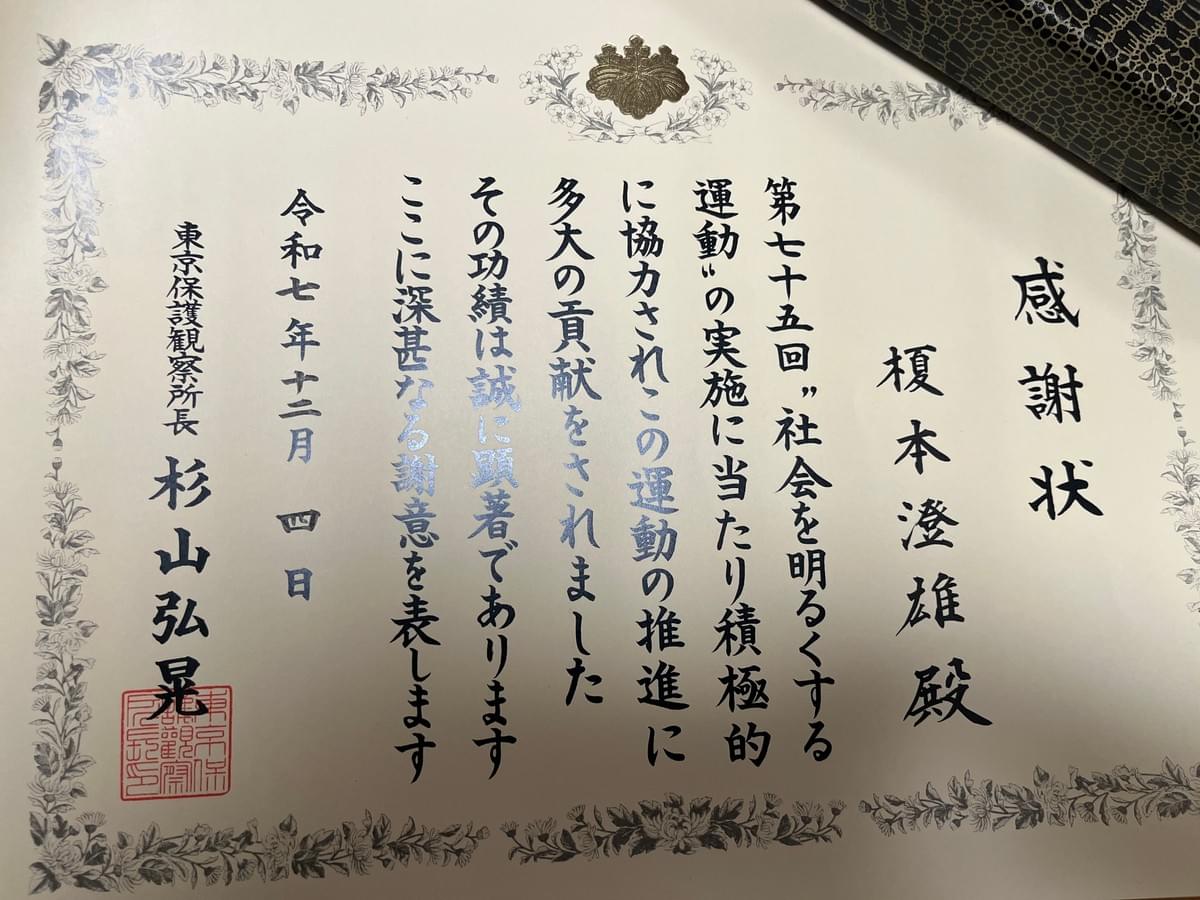 感謝状
榎本澄雄殿
第七十五回〝社会を明るくする
運動〟の実施に当たり積極的
に協力されこの運動の推進に
多大の貢献をされました
その功績は誠に顕著であります
ここに深甚なる謝意を表します
令和七年十二月四日
東京保護観察所長 杉山弘晃